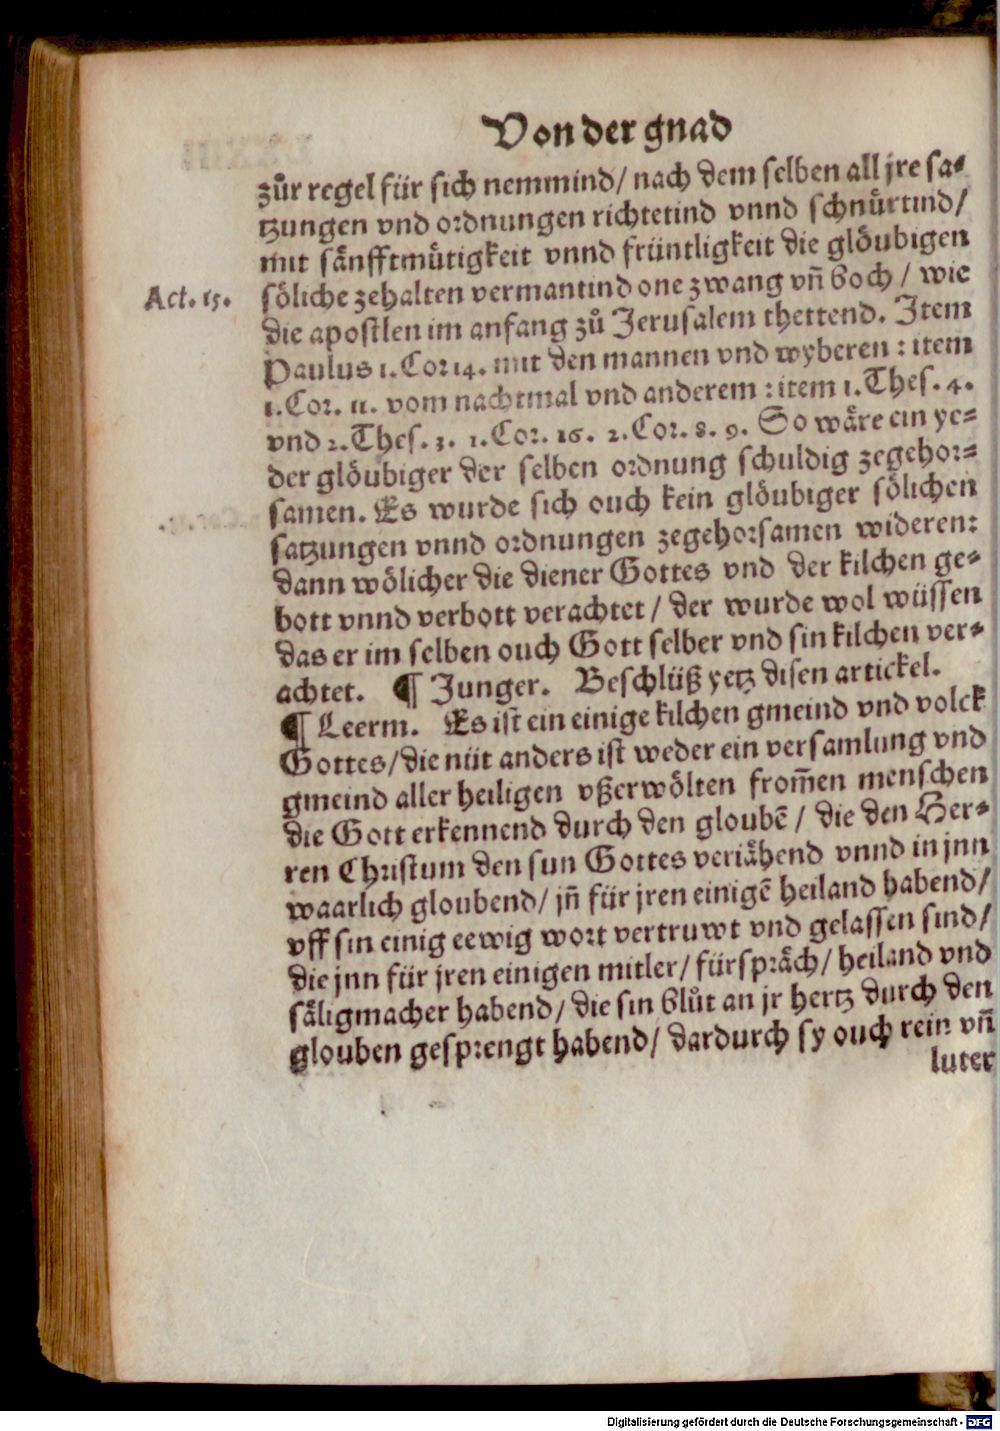 Von der gnad
zůr regel für sich nemmind/ nach dem selben all jre sa⸗
tzungen vnd ordnungen richtetind vnnd schnůrtind/
mit sänfftmůtigkeit vnnd früntligkeit die glöubigen
Act. 15. söliche zehalten vermantind one zwang vñ boch / wie
die apostlen im anfang zů Jerusalem thettend. Item
Paulus 1. Cor 14. mit den mannen vnd wyberen : item
1. Cor. 11. vom nachtmal vnd anderem : item 1. Thes. 4.
vnd 2. Thes. 3. 1. Cor. 16. 2. Cor. 8. 9. So wäre ein ye⸗
der glöubiger der selben ordnung schuldig zegehor⸗
samen. Es wurde sich ouch kein glöubiger sölichen
satzungen vnnd ordnungen zegehorsamen wideren:
dann wölicher die diener Gottes vnd der kilchen ge⸗
bott vnnd verbott verachtet / der wurde wol wüssen
das er im selben ouch Gott selber vnd sin kilchen ver⸗
achtet. ¶ Junger. Beschlüß yetz disen artickel.
¶ Leerm. Es ist ein einige kilchen gmeind vnd volck
Gottes/ die nüt anders ist weder ein versamlung vnd
gmeind aller heiligen vßerwölten from̃en menschen
die Gott erkennend durch den gloubẽ / die den Her⸗
ren Christum den sun Gottes veriähend vnnd in jnn
waarlich gloubend/ jñ für jren einigẽ heiland habend/
vff sin einig eewig wort vertruwt vnd gelassen sind/
die jnn für jren einigen mitler/ fürspräch/ heiland vnd
säligmacher habend/ die sin blůt an jr hertz durch den
glouben gesprengt habend/ dardurch sy ouch rein vñ
luter
Digitalisierung gefördert durch die Deutsche Forschungsgemeinschaft - DFG